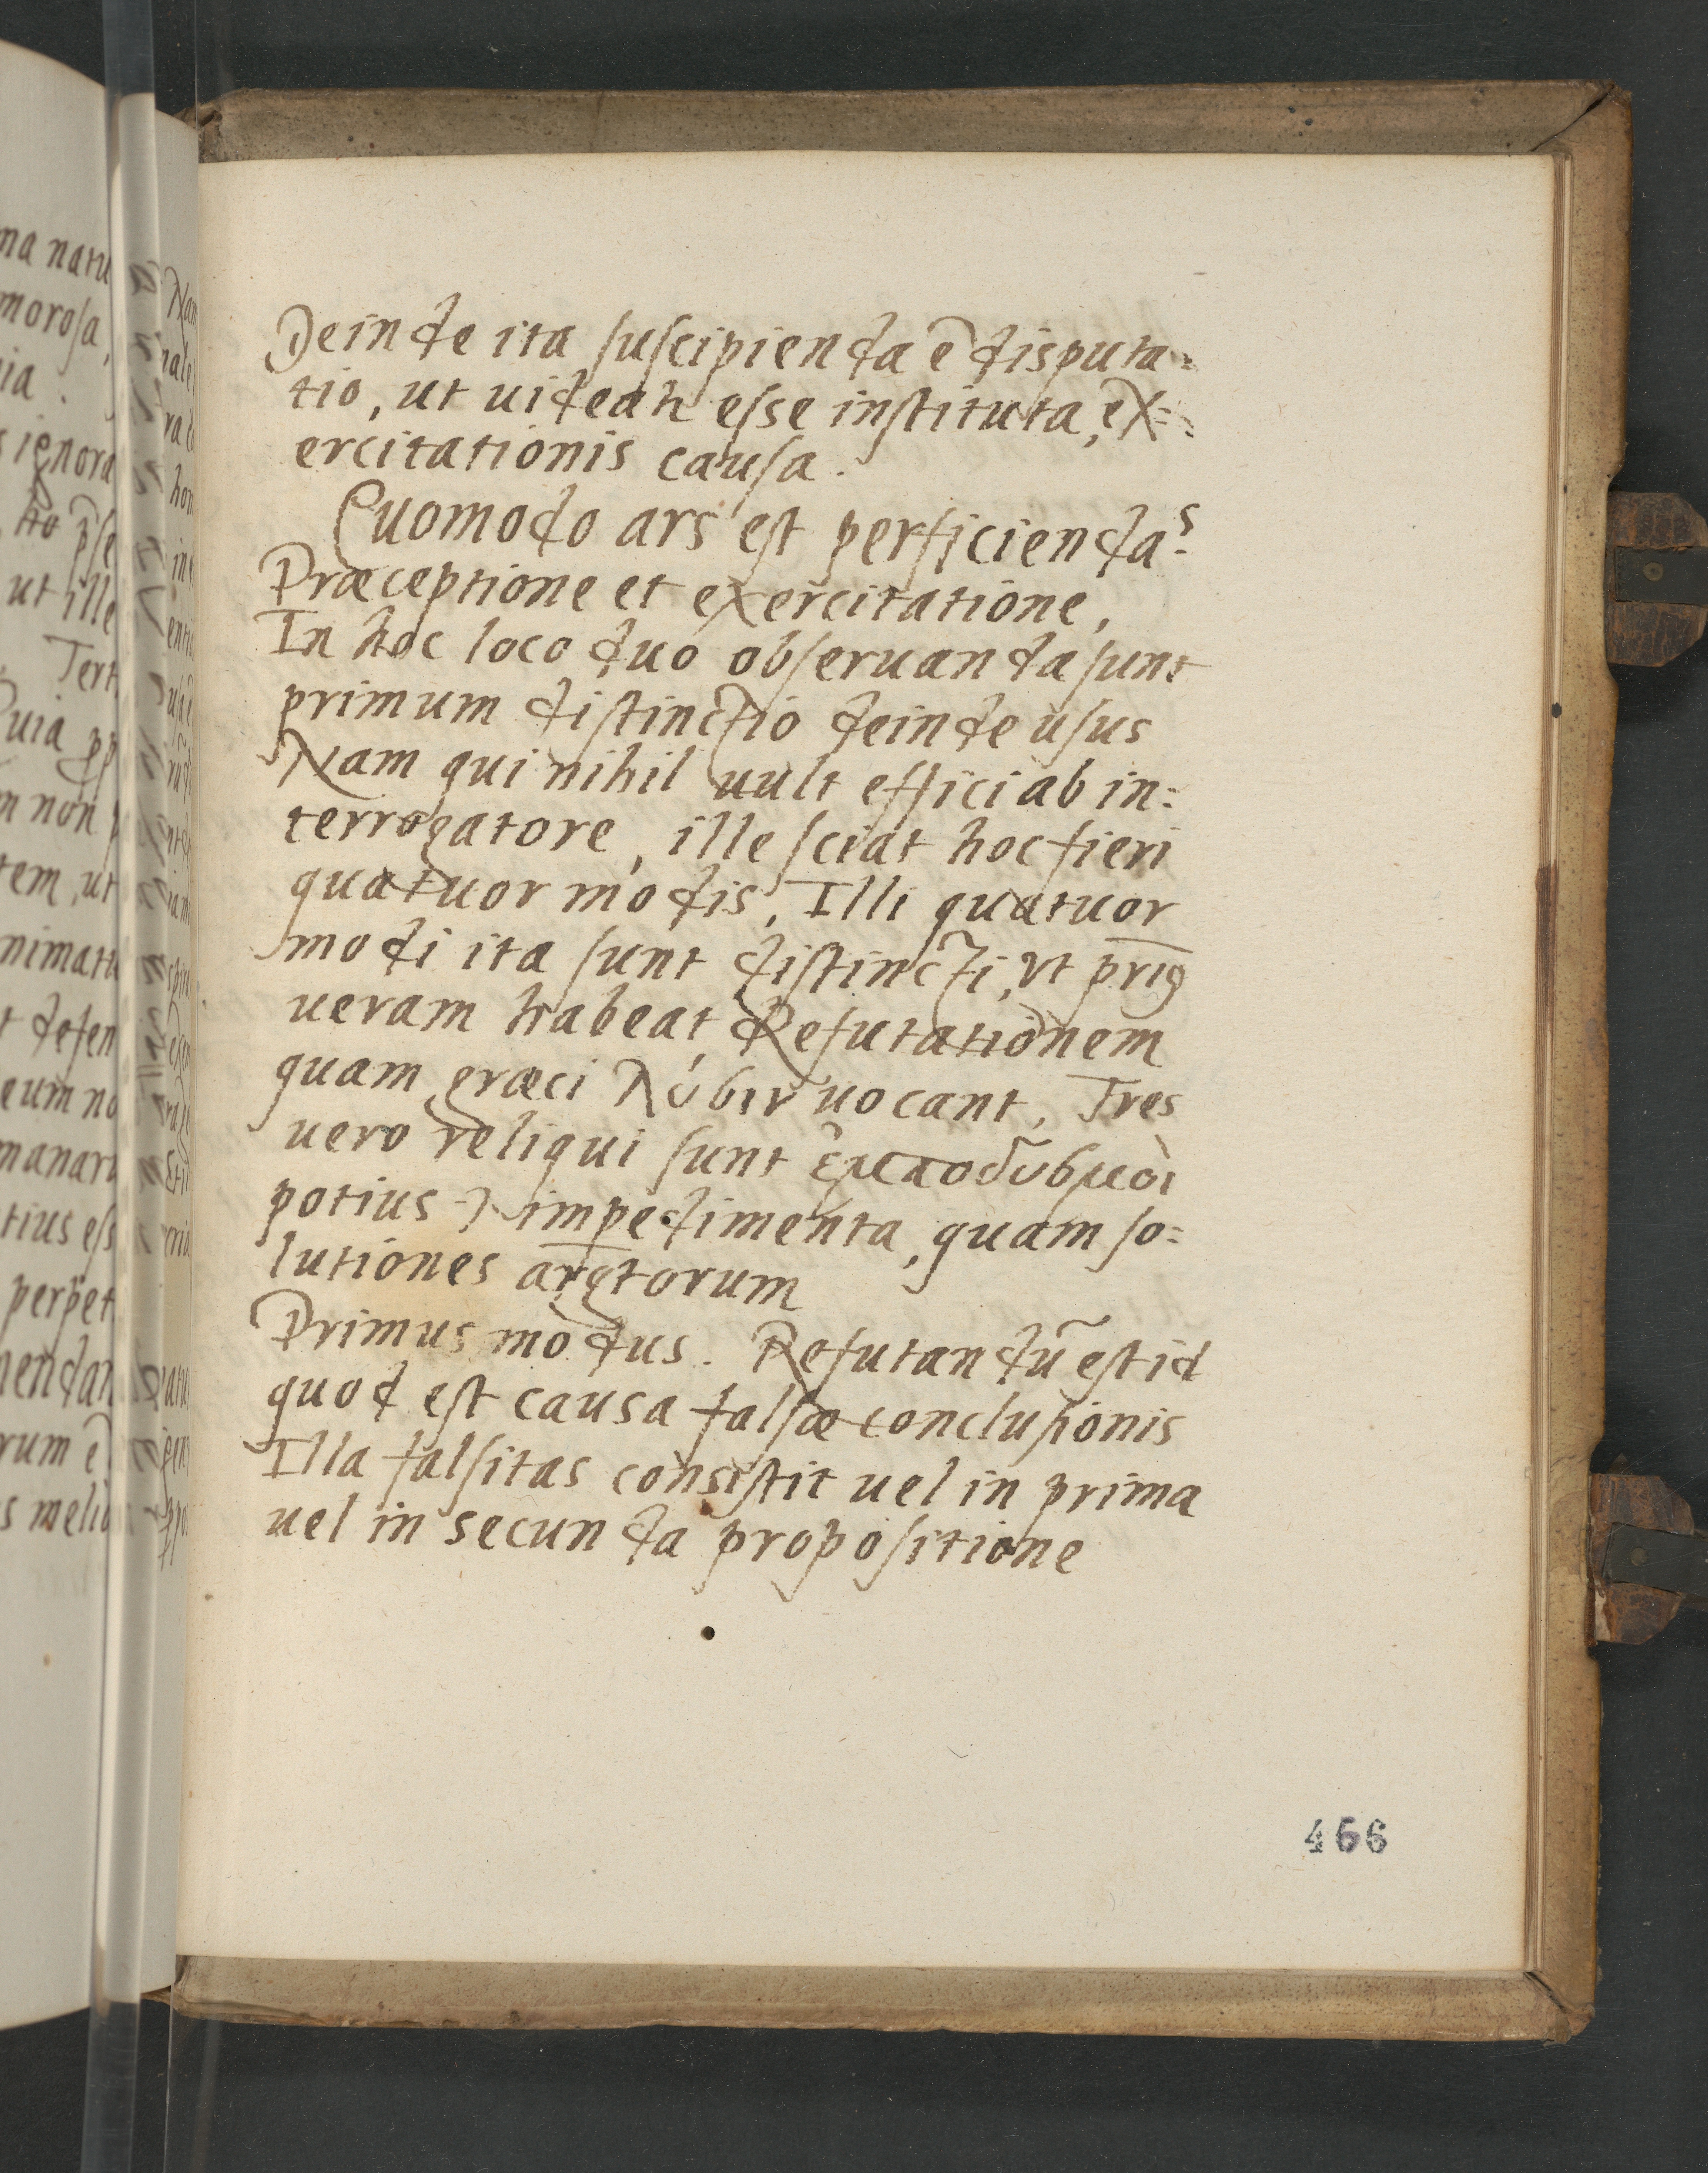 Deinde ita suscipienda ē disputa=
tio, ut uideatr esse instituta, ex=
ercitationis causa.
Quomodo ars est perficienda?
Præceptione et exercitatione,
In hoc loco duo obseruanda sunt
primum distinctio deinde usus
Nam qui nihil uult effici ab in=
terrogatore, ille sciat hoc fieri
quatuor modis, Illi quatuor
modi ita sunt distincti, ut
ueram habeat Refutationem
quam græci λύσιν uocant, Tres
uero reliqui sunt ἐμποδισμοὶ
potius impedimenta, quam so=
lutiones argtorum
Primus modus. Refutandū est id
quod est causa falsæ conclusionis
Illa falsitas consistit uel in prima
uel in secunda propositione
466
na natu
morosa,
ia.
ignora
ut ille
Tert
uia
non
tem, ut
nimatu
defen
eum no
manar
tius ess
perpet
rum ē
s meliu